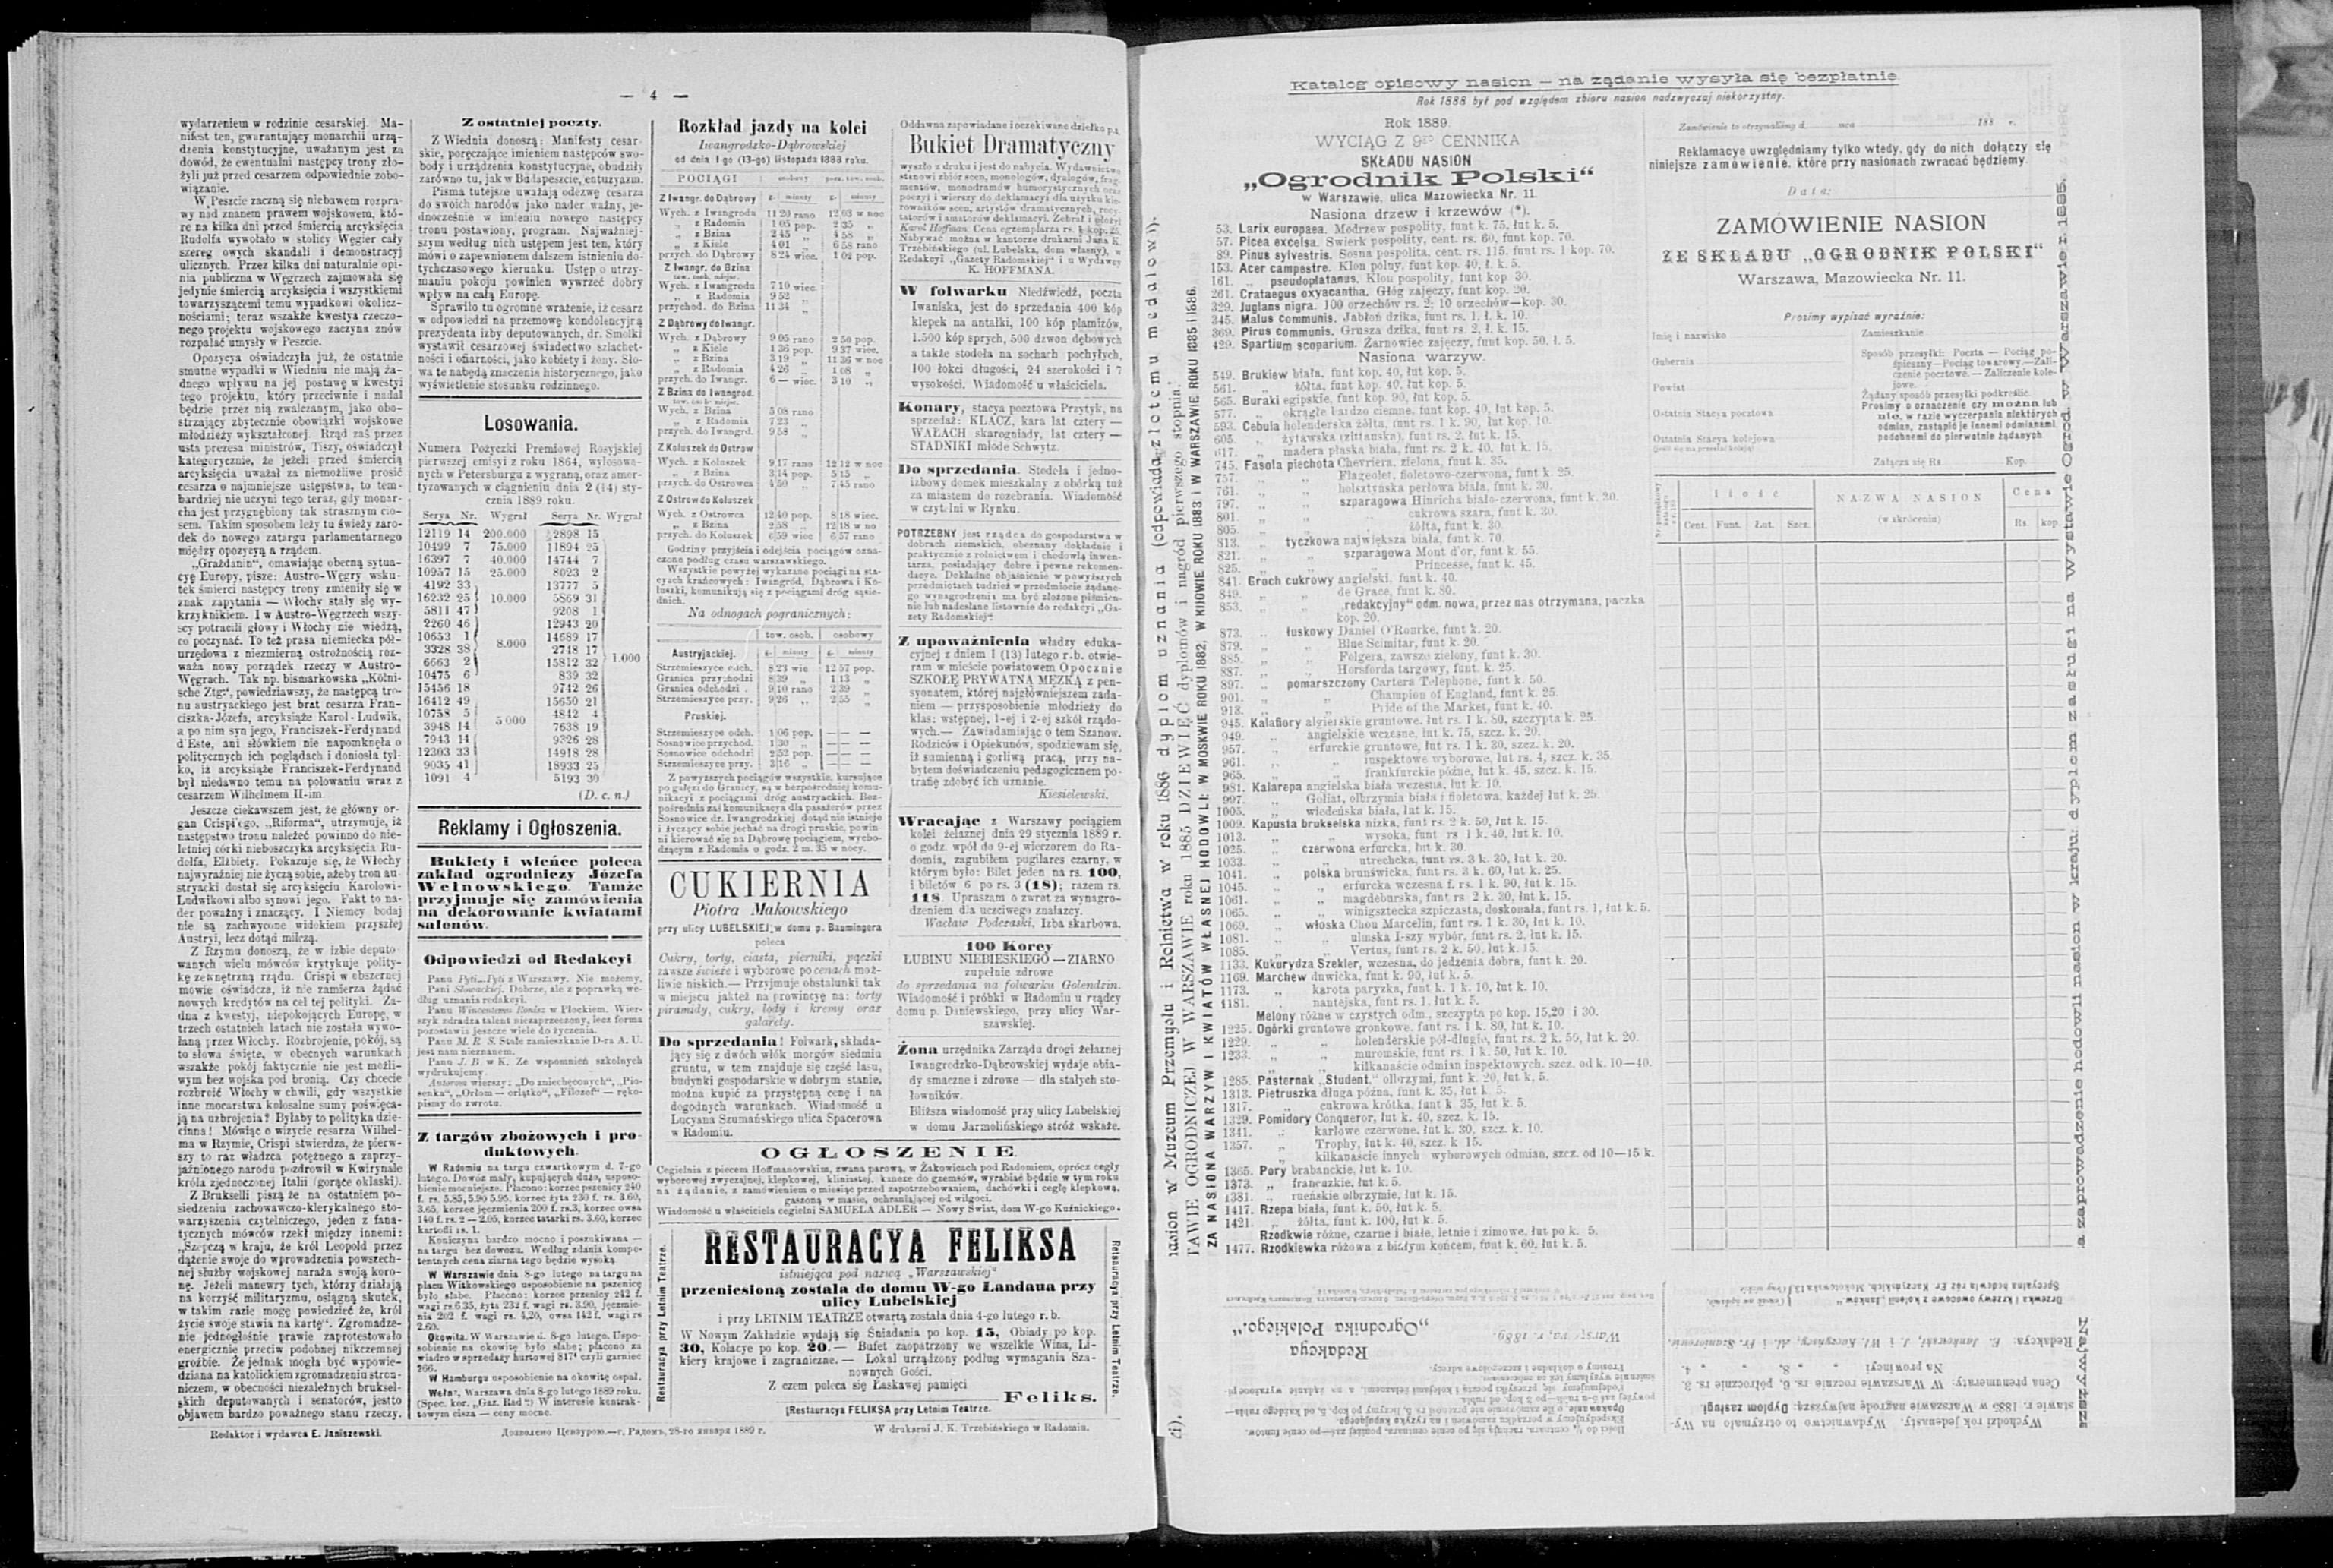 — 4 —
wydarzeniem w rodzinie cesarskiej. Ma-
nifest ten, gwarantujący monarchii urzą-
dzenia konstytucyjne, uważanym jest za
dowód, że ewentualni następcy trony zło-
żyli już przed cesarzem odpowiednie zobo-
wiązanie.
W Peszcie zaczną się niebawem rozpra-
wy nad znanem prawem wojskowem, któ-
re na kilka dni przed śmiercią arcyksięcia
Rudolfa wywołało w stolicy Węgier cały
szereg owych skandali i demonstracyj
ulicznych. Przez kilka dni naturalnie opi-
nia publiczna w Węgrzech zajmowała się
jedynie śmiercią arcyksięcia i wszystkiemi
towarzyszącemi temu wypadkowi okolicz-
nościami; teraz wszakże kwestya rzeczo-
nego projektu wojskowego zaczyna znów
rozpalać umysły w Peszcie.
Opozycya oświadczyła już, że ostatnie
smutne wypadki w Wiedniu nie mają ża-
dnego wpływu na jej postawę w kwestyi
tego projektu, który przeciwnie i nadal
będzie przez nią zwalczanym, jako obo-
strzający zbytecznie obowiązki wojskowe
młodzieży wykształconej. Rząd zaś przez
usta prezesa ministrów, Tiszy, oświadczył
kategorycznie, że jeżeli przed śmiercią
arcyksięcia uważał za niemożliwe prosić
cesarza o najmniejsze ustępstwa, to tem-
bardziej nie uczyni tego teraz, gdy monar-
cha jest przygnębiony tak strasznym cio-
sem. Takim sposobem leży tu świeży zaro-
dek do nowego zatargu parlamentarnego
między opozycyą a rządem.
„Grażdanin“, omawiając obecną sytua-
cyę Europy, pisze: Austro-Węgry wsku-
tek śmierci następcy trony zmieniły się w
znak zapytania — Włochy stały się wy-
krzyknikiem. I w Austro-Węgrzech wszy-
scy potracili głowy i Włochy nie wiedzą,
co poczynać. To też prasa niemiecka pół-
urzędowa z niezmierną ostrożnością roz-
waża nowy porządek rzeczy w Austro-
Węgrach. Tak np. bismarkowska „Kölni-
sche Ztg“, powiedziawszy, że następcą tro-
nu austryackiego jest brat cesarza Fran-
ciszka-Józefa, arcyksiąże Karol-Ludwik,
a po nim syn jego, Franciszek-Ferdynand
d'Este, ani słówkiem nie napomknęła o
politycznych ich poglądach i doniosła tyl-
ko, iż arcyksiąże Franciszek-Ferdynand
był niedawno temu na polowaniu wraz z
cesarzem Wilhelmem II-im.
Jeszcze ciekawszem jest, że główny or-
gan Crispi'ego, „Riforma“, utrzymuje, iż
następstwo tronu należeć powinno do nie-
letniej córki nieboszczyka arcyksięcia Ru-
dolfa, Elżbiety. Pokazuje się, że Włochy
najwyraźniej nie życzą sobie, ażeby tron au-
stryacki dostał się arcyksięciu Karolowi-
Ludwikowi albo synowi jego. Fakt to na-
der poważny i znaczący. I Niemcy bodaj
nie są zachwycone widokiem przyszłej
Austryi, lecz dotąd milczą.
Z Rzymu donoszą, że w izbie deputo-
wanych wielu mówców krytykuje polity-
kę zewnętrzną rządu. Crispi w obszernej
mowie oświadcza, iż nie zamierza żądać
nowych kredytów na cel tej polityki. Ża-
dna z kwestyj, niepokojących Europę, w
trzech ostatnich latach nie została wywo-
łaną przez Włochy. Rozbrojenie, pokój, są
to słowa święte, w obecnych warunkach
wszakże pokój faktycznie nie jest możli-
wym bez wojska pod bronią. Czy chcecie
rozbroić Włochy w chwili, gdy wszystkie
inne mocarstwa kolosalne sumy poświęca-
ją na uzbrojenia? Byłaby to polityka dzie-
cinna! Mówiąc o wizycie cesarza Wilhel-
ma w Rzymie, Crispi stwierdza, że pierw-
szy to raz władzca potężnego a zaprzy-
jaźnionego narodu pozdrowił w Kwirynale
króla zjednoczonej Italii (gorące oklaski).
Z Brukselli piszą że na ostatniem po-
siedzeniu zachowawczo-klerykalnego sto-
warzyszenia czytelniczego, jeden z fana-
tycznych mówców rzekł między innemi:
„Szepczą w kraju, że król Leopold przez
dążenie swoje do wprowadzenia powszech-
nej służby wojskowej naraża swoją koro-
nę. Jeżeli manewry tych, którzy działają
na korzyść militaryzmu, osiągną skutek,
w takim razie mogę powiedzieć że, król
życie swoje stawia na kartę“. Zgromadze-
nie jednogłośnie prawie zaprotestowało
energicznie przeciw podobnej nikczemnej
groźbie. Że jednak mogła być wypowie-
dziana na katolickiem zgromadzeniu stron-
niczem, w obecności niezależnych bruksel-
skich deputowanych i senatorów, jestto
objawem bardzo poważnego stanu rzeczy.
Z ostatniej poczty.
Z Wiednia donoszą: Manifesty cesar-
skie, poręczające imieniem następców swo-
body i urządzenia konstytucyjne, obudziły
zarówno tu, jak w Budapeszcie, entuzyazm.
Pisma tutejsze uważają odezwę cesarza
do swoich narodów jako nader ważny, je-
dnocześnie w imieniu nowego następcy
tronu postawiony, program. Najważniej-
szym według nich ustępem jest ten, który
mówi o zapewnionem dalszem istnieniu do-
tychczasowego kierunku. Ustęp o utrzy-
maniu pokoju powinien wywrzeć dobry
wpływ na całą Europę.
Sprawiło tu ogromne wrażenie, iż cesarz
w odpowiedzi na przemowę kondolencyjną
prezydenta izby deputowanych, dr. Smolki
wystawił cesarzowej świadectwo szlachet-
ności i ofiarności, jako kobiety i żony. Sło-
wa te nabędą znaczenia historycznego, jako
wyświetlenie stosunku rodzinnego.
Losowania.
Numera Pożyczki Premiowej Rosyjskiej
pierwszej emisyi z roku 1864, wylosowa-
nych w Petersburgu z wygraną, oraz amor-
tyzowanych w ciągnieniu dnia 2 (14) sty-
cznia 1889 roku.
Serya Nr. Wygrał Serya Nr. Wygrał
12119 14 200.000 2898 15
10499 7 75.000 11894 25
16397 7 40.000 14744 7
10957 15 25.000 8023 2
4192 33 13777 5
16232 25 10.000 5869 31
5811 47 9208 1
2260 46 12943 20
10653 1 14689 17
3328 38 8.000 2748 17
6663 2 15812 32 1.000
10475 6 839 32
15456 18 9742 26
16412 49 15650 21
10758 5 5 000 4842 4
3948 14 7638 19
7943 14 9726 28
12303 33 14918 28
9035 41 18933 25
1091 4 5193 30
(D. c. n.)
Reklamy i Ogłoszenia.
Bukiety i wieńce poleca
zakład ogrodniczy Józefa
Welnowskiego. Tamże
przyjmuje się zamówienia
na dekorowanie kwiatami
salonów.
Odpowiedzi od Redakcyi
Panu Pyti...Pyti z Warszawy. Nie możemy.
Pani Słowackiej. Dobrze, ale z poprawką we-
dług uznania redakcyi.
Panu Wincentemu Ronisz w Płockiem. Wier-
szyk zdradza talent niezaprzeczony, lecz forma
pozostawia jeszcze wiele do życzenia.
Panu M. R. S. Stałe zamieszkanie D-ra A. U.
jest nam nieznanem.
Panu J. B. w K. Ze wspomnień szkolnych
wydrukujemy.
Autorom wierszy: „Do zniechęconych“, „Pio-
senka“, „Orłom — orlątko“, „Filozof“ — ręko-
pismy do zwrotu.
Z targów zbożowych i pro-
duktowych.
W Radomiu na targu czwartkowym d. 7-go
lutego. Dowóz mały, kupujących dużo, usposo-
bienie mocniejsze. Płacono: korzec pszenicy 240
f. rs. 5.85, 5.90 5.95, korzec żyta 230 f. rs. 3.60,
3.65, korzec jęczmienia 200 f. rs.3, korzec owsa
140 f. rs. 2 — 2.05, korzec tatarki rs. 3.60, korzec
kartofli rs. 1.
Koniczyna bardzo mocno i poszukiwana —
na targu bez dowozu. Według zdania kompe-
tentnych cena ziarna tego będzie wysoką.
W Warszawie dnia 8-go lutego na targu na
placu Witkowskiego usposobienie na pszenicę
było słabe. Płacono: korzec pszenicy 242 f.
wagi rs 6.35, żyta 232 f. wagi rs. 3.90, jęczmie-
nia 202 f. wagi rs. 4,20, owsa 142 f. wagi rs
2.60.
Okowita. W Warszawie d. 8-go lutego. Uspo-
sobienie na okowitę było słabe; płacono za
wiadro w sprzedaży hurtowej 817 czyli garniec
266.
W Hamburgu usposobienie na okowitę ospał.
Wełna, Warszawa dnia 8-go lutego 1889 roku.
(Spec. kor. „Gaz. Rad“.) W interesie kontrak-
towym cisza — ceny mocne.
Rozkład jazdy na kolei
Iwangrodzko-Dąbrowskiej
od dnia 1 go (13-go) listopada 1888 roku.
POCIĄGI osobowy
Z Iwangr. do Dąbrowy g. minuty g. minuty
Wych. z Iwangrodu 11 20 rano 12 03 w noc
„ z Radomia 1 05 pop. 2 35 „
„ z Bzina 2 45 „ 4 58 „
„ z Kielc 4 01 „ 6 58 rano
przych. do Dąbrowy 8 24 wiec. 1 02 pop.
Z Iwangr. do Bzina
Wych. z Iwangrodu 7 10 wiec.
„ z Radomia 9 52 „
przychod. do Bzina 11 34 „
Z Dąbrowy do Iwangr.
Wych. z Dąbrowy 9 05 rano 2 50 pop.
„ z Kielc 1 36 pop. 9 37 wiec.
„ z Bzina 3 19 „ 11 36 w noc
„ z Radomia 4 26 „ 1 08 „
przych. do Iwangr. 6 — wiec. 3 10 „
Z Bzina do Iwangrod.
Wych. z Bzina 5 08 rano
„ z Radomia 7 23 „
przych. do Iwangrd. 9 58 „
Z Koluszek do Ostrow
Wych. z Koluszek 9 17 rano 12 12 w noc
„ z Bzina 3 14 pop. 5 15 „
przych. do Ostrowca 4 50 „ 7 45 rano
Z Ostrow do Koluszek
Wych. z Ostrowca 12 40 pop. 8 18 wiec.
„ z Bzina 2 58 „ 12 18 w no
przych. do Koluszek 6 59 wiec 6 57 rano
Godziny przyjścia i odejścia pociągów ozna-
czone podług czasu warszawskiego.
Wszystkie powyżej wykazane pociągi na sta-
cyach krańcowych: Iwangród, Dąbrowa i Ko-
luszki, komunikują się z pociągami dróg sąsie-
dnich.
Na odnogach pogranicznych:
tow. osob. osobowy
Austryjackiej. g. minuty g. minuty
Strzemieszyce odch. 8 23 wie 12 57 pop.
Granica przychodzi 8 39 „ 1 13 „
Granica odchodzi . 9 10 rano 2 39 „
Strzemieszyce przy. 9 26 „ 2 55 „
Pruskiej.
Strzemieszyce odch. 1 06 pop. — — —
Sosnowice przychod. 1 30 „ — — —
Sosnowice odchodzi 2 52 pop. — — —
Strzemieszyce przy. 3 16 „ — — —
Z powyższych pociągów wszystkie, kursujące
po gałęzi do Granicy, są w bezpośredniej komu-
nikacyi z pociągami dróg austryackich. Bez-
pośrednia zaś komunikacya dla pasażerów przez
Sosnowice dr. Iwangrodzkiej dotąd nie istnieje
i życzący sobie jechać na drogi pruskie, powin-
ni kierować się na Dąbrowę pociągiem, wycho-
dzącym z Radomia o godz. 2 m. 35 w nocy.
CUKIERNIA
Piotra Makowskiego
przy ulicy LUBELSKIEJ w domu p. Baumingera
poleca
Cukry, torty, ciasta, pierniki, pączki
zawsze świeże i wyborowe po cenach moż-
liwie niskich. — Przyjmuje obstalunki tak
w miejscu jakteż na prowincyę na: torty
piramidy, cukry, lody i kremy oraz
galarety.
Do sprzedania! Folwark, składa-
jący się z dwóch włók morgów siedmiu
gruntu, w tem znajduje się część lasu,
budynki gospodarskie w dobrym stanie,
można kupić za przystępną cenę i na
dogodnych warunkach. Wiadomość u
Lucyana Szumańskiego ulica Spacerowa
w Radomiu.
Oddawna zapowiadane i oczekiwane dziełko p.t.
Bukiet Dramatyczny
wyszło z druku i jest do nabycia. Wydawnictwo
stanowi zbiór scen, monologów, dyalogów, frag-
mentów, monodramów humorystycznych oraz
poezyj i wierszy do deklamacyi dla użytku kie-
rowników scen, artystów dramatycznych, recy-
tatorów i amatorów deklamacyi. Zebrał i ułożył
Karol Hoffman. Cena egzemplarza rs.
Nabywać można w kantorze drukarni Jana K.
Trzebińskiego (ul. Lubelska, dom własny), w
Redakcyi „Gazety Radomskiej“ i u Wydawcy
K. HOFFMANA.
W folwarku Niedźwiedź, poczta
Iwaniska, jest do sprzedania 400 kóp
klepek na antałki, 100 kóp plamizów,
1.500 kóp sprych, 500 dzwon dębowych
a także stodoła na sochach pochyłych,
100 łokci długości, 24 szerokości i 7
wysokości. Wiadomość u właściciela.
Konary, stacya pocztowa Przytyk, na
sprzedaż: KLACZ, kara lat cztery —
WAŁACH skarogniady, lat cztery —
STADNIKI młode Schwytz.
Do sprzedania. Stodoła i jedno-
izbowy domek mieszkalny z obórką tuż
za miastem do rozebrania. Wiadomość
w czytelni w Rynku.
POTRZEBNY jest rządca do gospodarstwa w
dobrach ziemskich, obeznany dokładnie i
praktycznie z rolnictwem i chodowlą inwen-
tarza, posiadający dobre i pewne rekomen-
dacye. Dokładne objaśnienie w powyższych
przedmiotach tudzież w przedmiocie żądane-
go wynagrodzenia ma być złożone piśmien-
nie lub nadesłane listownie do redakcyi „Ga-
zety Radomskiej“.
Z upoważnienia władzy eduka-
cyjnej z dniem 1 (13) lutego r.b. otwie-
ram w mieście powiatowem Opocznie
SZKOŁĘ PRYWATNĄ MĘZKĄ z pen-
syonatem, której najgłówniejszem zada-
niem — przysposobienie młodzieży do
klas: wstępnej, 1-ej i 2-ej szkół rządo-
wych.— Zawiadamiając o tem Szanow.
Rodziców i Opiekunów, spodziewam się,
iż sumienną i gorliwą pracą, przy na-
bytem doświadczeniu pedagogicznem po-
trafię zdobyć ich uznanie.
Kisielewski.
Wracając z Warszawy pociągiem
kolei żelaznej dnia 29 stycznia 1889 r.
o godz. wpół do 9-ej wieczorem do Ra-
domia, zagubiłem pugilares czarny, w
którym było: Bilet jeden na rs. 100,
i biletów 6 po rs. 3 (18); razem rs.
118. Upraszam o zwrot za wynagro-
dzeniem dla uczciwego znalazcy.
Wacław Podczaski, Izba skarbowa.
100 Korcy
ŁUBINU NIEBIESKIEGO — ZIARNO
zupełnie zdrowe
do sprzedania na folwarku Gołendzin.
Wiadomość i próbki w Radomiu u rządcy
domu p. Daniewskiego, przy ulicy War-
szawskiej.
Żona urzędnika Zarządu drogi żelaznej
Iwangrodzko-Dąbrowskiej wydaje obia-
dy smaczne i zdrowe — dla stałych sto-
łowników.
Bliższa wiadomość przy ulicy Lubelskiej
w domu Jarmolińskiego stróż wskaże.
OGŁOSZENIE.
Cegielnia z piecem Hoffmanowskim, zwana parową, w Żakowicach pod Radomiem, oprócz cegły
wyborowej zwyczajnej, klepkowej, klinistej, kanoze do gzemsów, wyrabiać będzie w tym roku
na żądanie, z zamówieniem o miesiąc przed zapotrzebowaniem, dachówki i cegłę klepkową,
gaszoną w masie, ochraniającej od wilgoci.
Wiadomość u właściciela cegielni SAMUELA ADLER — Nowy Świat, dom W-go Kuźnickiego.
Restauracya przy Letnim Teatrze.
RESTAURACYA FELIKSA
istniejąca pod nazwą „Warszawskiej“
przeniesioną została do domu W-go Landaua przy
ulicy Lubelskiej
i przy LETNIM TEATRZE otwartą została dnia 4-go lutego r. b.
W Nowym Zakładzie wydają się Śniadania po kop. 15, Obiady po kop.
30, Kolacye po kop. 20. — Bufet zaopatrzony we wszelkie Wina, Li-
kiery krajowe i zagraniczne. — Lokal urządzony podług wymagania Sza-
nownych Gości.
Z czem poleca się Łaskawej pamięci
Feliks.
Restauracya FELIKSA przy Letnim Teatrze.
Restauracya przy Letnim Teatrze.
Redaktor i wydawca E. Janiszewski.
Дозволено Цензурою.—г. Радомъ, 28-го января 1889 г.
W drukarni J. K. Trzebińskiego w Radomiu.
Katalog opisowy nasion — na żądanie wysyła się bezpłatnie
Rok 1888 był pod względem zbioru nasion nadzwyczaj niekorzystny.
Rok 1889.
WYCIĄG Z 9go CENNIKA
SKŁADU NASION
„Ogrodnik Polski“
w Warszawie, ulica Mazowiecka Nr. 11.
Nasiona drzew i krzewów (*).
53. Larix europaea. Modrzew pospolity, funt k. 75, łut k. 5.
57. Picea excelsa. Świerk pospolity, cent. rs. 60, funt kop. 70.
89. Pinus sylvestris. Sosna pospolita, cent. rs. 115, funt rs. 1 kop. 70.
153. Acer campestre. Klon polny, funt kop. 40, ł. k. 5.
161. „ pseudoplatanus. Klon pospolity, funt kop 30.
261. Crataegus oxyacantha. Głóg zajęczy, funt kop. 20.
329. Juglans nigra. 100 orzechów rs. 2; 10 orzechów—kop. 30.
345. Malus communis. Jabłoń dzika, funt rs. 1, ł. k. 10.
369. Pirus communis. Grusza dzika, funt rs. 2, ł. k. 15.
429. Spartium scoparium. Żarnowiec zajęczy, funt kop. 50, ł. 5.
Nasiona warzyw.
549. Brukiew biała, funt kop. 40, łut kop. 5.
561. „ żółta, funt kop. 40, łut kop. 5.
565. Buraki egipskie, funt kop. 90, łut kop. 5.
577. „ okrągłe bardzo ciemne, funt kop. 40, łut kop. 5.
593. Cebula holenderska żółta, funt rs. 1 k. 90, łut kop. 10.
605. „ żytawska (zittauska), funt rs. 2, łut k. 15.
617. „ madera płaska biała, funt rs. 2 k. 40, łut k. 15.
745. Fasola piechota Chevriera, zielona, funt k. 35.
757. „ „ Flageolet, fioletowo-czerwona, funt k. 25.
761. „ „ holsztyńska perłowa biała, funt k. 30.
797. „ „ szparagowa Hinricha biało-czerwona, funt k. 20.
801. „ „ „ cukrowa szara, funt k. 30.
805. „ „ „ żółta, funt k. 30.
813. „ tyczkowa największa biała, funt k. 70.
821. „ „ szparagowa Mont d'or, funt k. 55.
825. „ „ „ Princesse, funt k. 45.
841. Groch cukrowy angielski, funt k. 40.
849. „ „ de Grace, funt k. 80.
853. „ „ „redakcyjny“ odm. nowa, przez nas otrzymana, paczka
kop. 20.
873. „ łuskowy Daniel O'Rourke, funt k. 20.
879. „ „ Blue Scimitar, funt k. 20.
885. „ „ Folgera, zawsze zielony, funt k. 30.
887. „ „ Horsforda targowy, funt. k. 25.
897. „ pomarszczony Cartera Telephone, funt k. 50.
901. „ „ Champion of England, funt k. 25.
913. „ „ Pride of the Market, funt k. 40.
945. Kalafiory algierskie gruntowe, łut rs. 1 k. 80, szczypta k. 25.
949. „ angielskie wczesne, łut k. 75, szcz. k. 20.
957. „ erfurckie gruntowe, łut rs. 1 k. 30, szcz. k. 20.
961. „ „ inspektowe wyborowe, łut rs. 4, szcz. k. 35.
965. „ frankfurckie późne, łut k. 45, szcz. k. 15.
981. Kalarepa angielska biała wczesna, łut k. 10.
997. „ Goliat, olbrzymia biała i fioletowa, każdej łut k. 25.
1005. „ wiedeńska biała, łut k. 15.
1009. Kapusta brukselska nizka, funt rs. 2 k. 50, łut k. 15.
1013. „ „ wysoka, funt rs 1 k. 40, łut k. 10.
1025. „ czerwona erfurcka, łut k. 30.
1033. „ „ utrechcka, funt rs. 3 k. 30, łut k. 20.
1041. „ polska brunświcka, funt rs. 3 k. 60, łut k. 25.
1045. „ „ erfurcka wczesna f. rs. 1 k. 90, łut k. 15.
1061. „ „ magdeburska, funt rs 2 k. 30, łut k. 15.
1065. „ „ winigsztecka szpiczasta, doskonała, funt rs. 1, łut k. 5.
1069. „ włoska Chou Marcelin, funt rs. 1 k. 30, łut k. 10.
1081. „ „ ulmska I-szy wybór, funt rs. 2, łut k. 15.
1085. „ „ Vertus, funt rs. 2 k. 50, łut k. 15.
1133. Kukurydza Szekler, wczesna, do jedzenia dobra, funt k. 20.
1169. Marchew duwicka, funt k. 90, łut k. 5.
1173. „ karota paryzka, funt k. 1 k. 10, łut k. 10.
1181. „ nantejska, funt rs. 1, łut k. 5.
Melony różne w czystych odm., szczypta po kop. 15,20 i 30.
1225. Ogórki gruntowe gronkowe, funt rs. 1 k. 80, łut k. 10.
1229. „ „ holenderskie pół-długie, funt rs. 2 k. 50, łut k. 20.
1233. „ „ muromskie, funt rs. 1 k. 50, łut k. 10.
„ „ kilkanaście odmian inspektowych, szcz. od k. 10—40.
1285. Pasternak „Student,“ olbrzymi, funt k. 20, łut k. 5.
1313. Pietruszka długa późna, funt k. 35, łut k. 5.
1317. „ cukrowa krótka, funt k. 35, łut k. 5.
1329. Pomidory Conqueror, łut k. 40, szcz. k. 15.
1341. „ karłowe czerwone, łut k. 30, szcz. k. 10.
1357. „ Trophy, łut k. 40, szcz. k 15.
„ kilkanaście innych wyborowych odmian, szcz. od 10—15 k.
1365. Pory brabanckie, łut k. 10.
1373. „ francuzkie, łut k. 5.
1381. „ rueńskie olbrzymie, łut k. 15.
1417. Rzepa biała, funt k. 50, łut k. 5.
1421. „ żółta, funt k. 100, łut k. 5.
Rzodkwie różne, czarne i białe, letnie i zimowe, łut po k. 5.
1477. Rzodkiewka różowa z białym końcem, funt k. 60, łut k. 5.
Zamówienie to otrzymaliśmy d. mca 188 r.
Reklamacye uwzględniamy tylko wtedy, gdy do nich dołączy się
niniejsze zamówienie, które przy nasionach zwracać będziemy.
Data:
ZAMÓWIENIE NASION
ZE SKŁADU „OGRODNIK POLSKI“
Warszawa, Mazowiecka Nr. 11.
Prosimy wypisać wyraźnie:
Imię i nazwisko
Gubernia
Powiat
Ostatnia Stacya pocztowa
Ostatnia Stacya kolejowa
Zamieszkanie
Sposób przesyłki: Poczta — Pociąg po-
śpieszny—Pociąg towarowy.—Zali-
czenie pocztowe. — Zaliczenie kole-
jowe.
Żądany sposób przesyłki podkreślić.
Prosimy o oznaczenie czy można lub
nie, w razie wyczerpania niektórych
odmian, zastąpić je innemi odmianami,
podobnemi do pierwotnie żądanych
Załącza się Rs. Kop.
Ilość NAZWA NASION Cena
Cent. Funt. Łut. Szcz. (w skróceniu) Rs. kop
nasion w Muzeum Przemysłu i Rolnictwa w roku 1886 dyplom uznania (odpowiada złotemu medalowi).
TAWIE OGRODNICZEJ W WARSZAWIE roku 1885 DZIEWIĘĆ dyplomów i nagród pierwszego stopnia.
ZA NASIONA WARZYW I KWIATÓW WŁASNEJ HODOWLI: W MOSKWIE ROKU 1882, W KIJOWIE ROKU 1883 i W WARSZAWIE ROKU 1885 i 1886.
za zaprowadzenie hodowli nasion w kraju: dyplom zasługi na Wystawie Ogrod. w Warszawie r. 1885.
Najwyższe
Wychodzi rok jedenasty. Wydawnictwo to otrzymało na Wy-
stawie r. 1885 w Warszawie nagrodę najwyższą: Dyplom zasługi.
Cena prenumeraty: W Warszawie rocznie rs. 6, półrocznie rs. 3.
Na prowincyi „ „ 8, „ „ 4.
Redakcya
„Ogrodnika Polskiego.“
Warszawa, r. 1889.